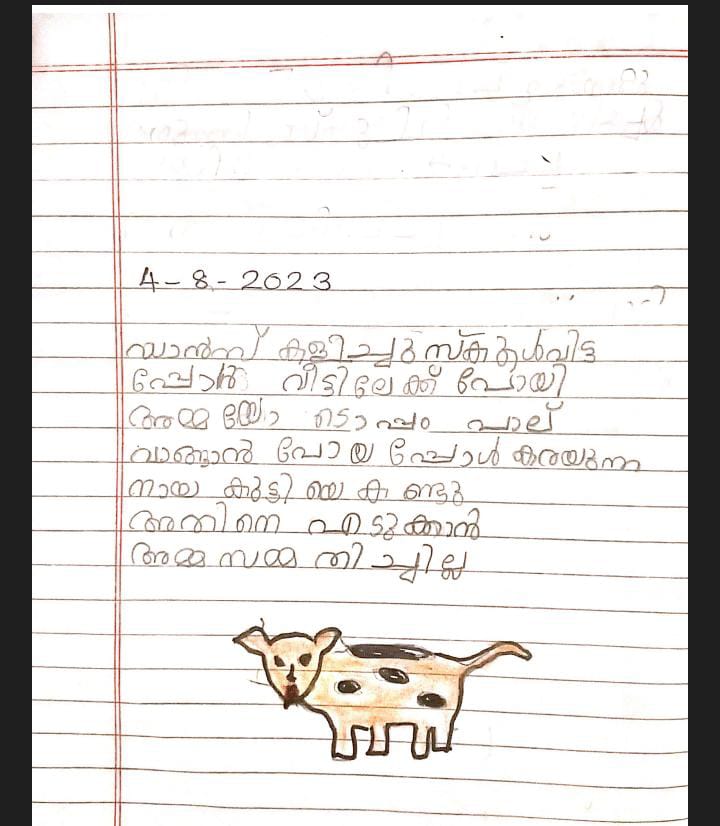 4-8-2023
ഡാൻസ് കളിച്ചു സ്കൂൾവിട്ട
പ്പോൾ വീട്ടിലേക്ക് പോയി
അമ്മ യോ ടൊപ്പം പാല്
വാങ്ങാൻ പോയ പ്പോൾ കരയുന്ന
നായ കുട്ടി യെ ക ണ്ടു
അതിനെ എടുക്കാൻ
അമ്മ സമ്മ തി ച്ചില്ല